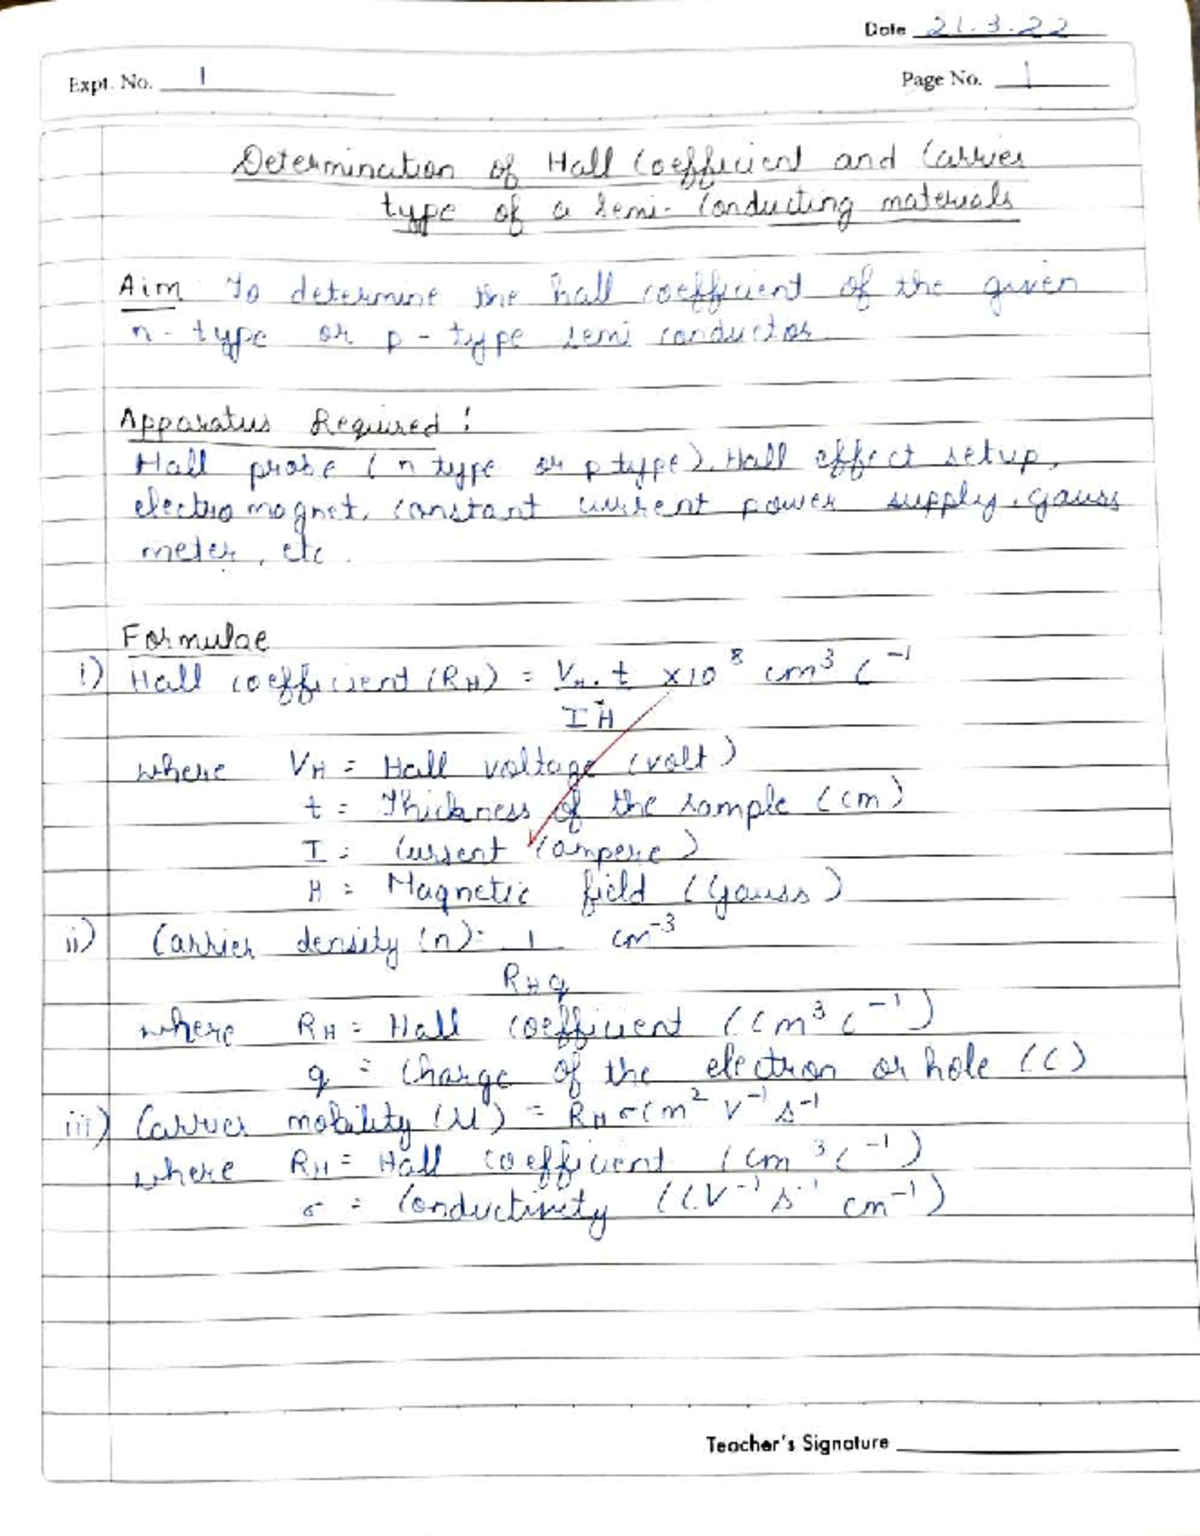 Date 21.3.22
Expt. No. 1
Page No. 1
Determination of Hall Coefficient and Carrier
type of a semi-conducting materials
Aim To determine the hall coefficient of the given
n-type or p-type semi conductor.
Apparatus Required:
Hall probe (n type or p type), Hall effect setup,
electro magnet, constant current power supply, gauss
meter, etc.
Formulae
i) Hall coefficient (RH) = VH.t x10^8 cm^3 C^-1
IH
where VH = Hall voltage (volt)
t = Thickness of the sample (cm)
I = Current (ampere)
H = Magnetic field (Gauss)
ii) Carrier density (n) = 1 cm^-3
RHq
where RH = Hall coefficient (Cm^3 C^-1)
q = Charge of the electron or hole (C)
iii) Carrier mobility (μ) = RHσ cm^2 V^-1 s^-1
where RH = Hall coefficient (cm^3 C^-1)
σ = Conductivity (C V^-1 s^-1 cm^-1)
Teacher's Signature